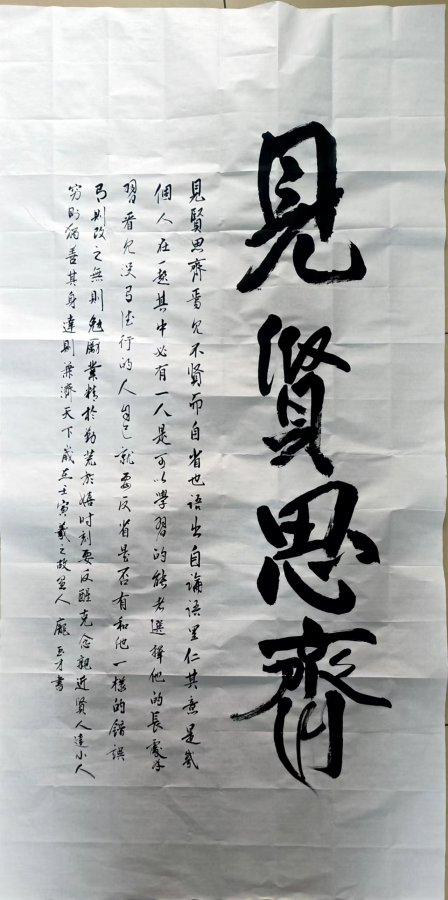 見賢思齊
見賢思齊焉見不賢而自省也語出自論語里仁其意是幾
個人在一起其中必有一人是可以學習的能者選擇他的長處學
習看見沒有德行的人自己就要反省是否有和他一樣的錯誤
有則改之無則勉勵業精於勤荒於嬉時刻要反醒克念親近賢人遠小人
窮則獨善其身達則兼濟天下歲在壬寅羲之故里人龐玉才書